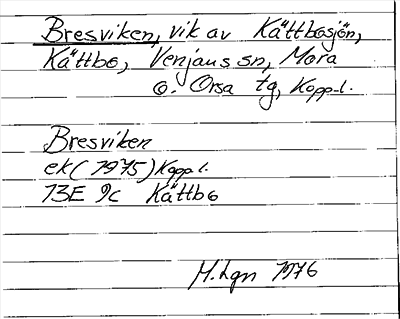 Bresviken, vik av Kättbosjön,
Kättbo, Venjans sn, Mora
o. Orsa tg, Kopp-l.
Bresviken
ek (1975) Kopp l.
13E 9c Kättbo
M. Lgn 1976